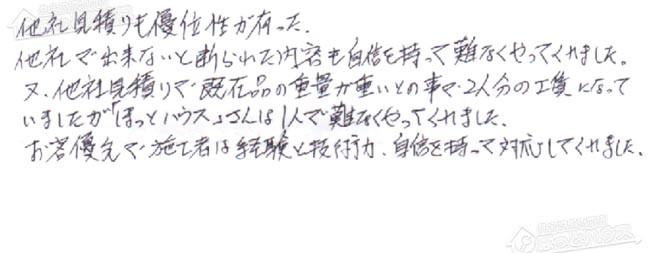 他社見積りも優位性が有った.
他社で出来ないと断られた内容も自信を持って難なくやってくれました。
又、他社見積りで既在品の重量が重いとの事で2人分の工賃になって
いましたが「ほっとハウス」さんは1人で難なくやってくれました.
お客優先で施工者は経験と技術力、自信を持って対応してくれました.
ほっとハウス